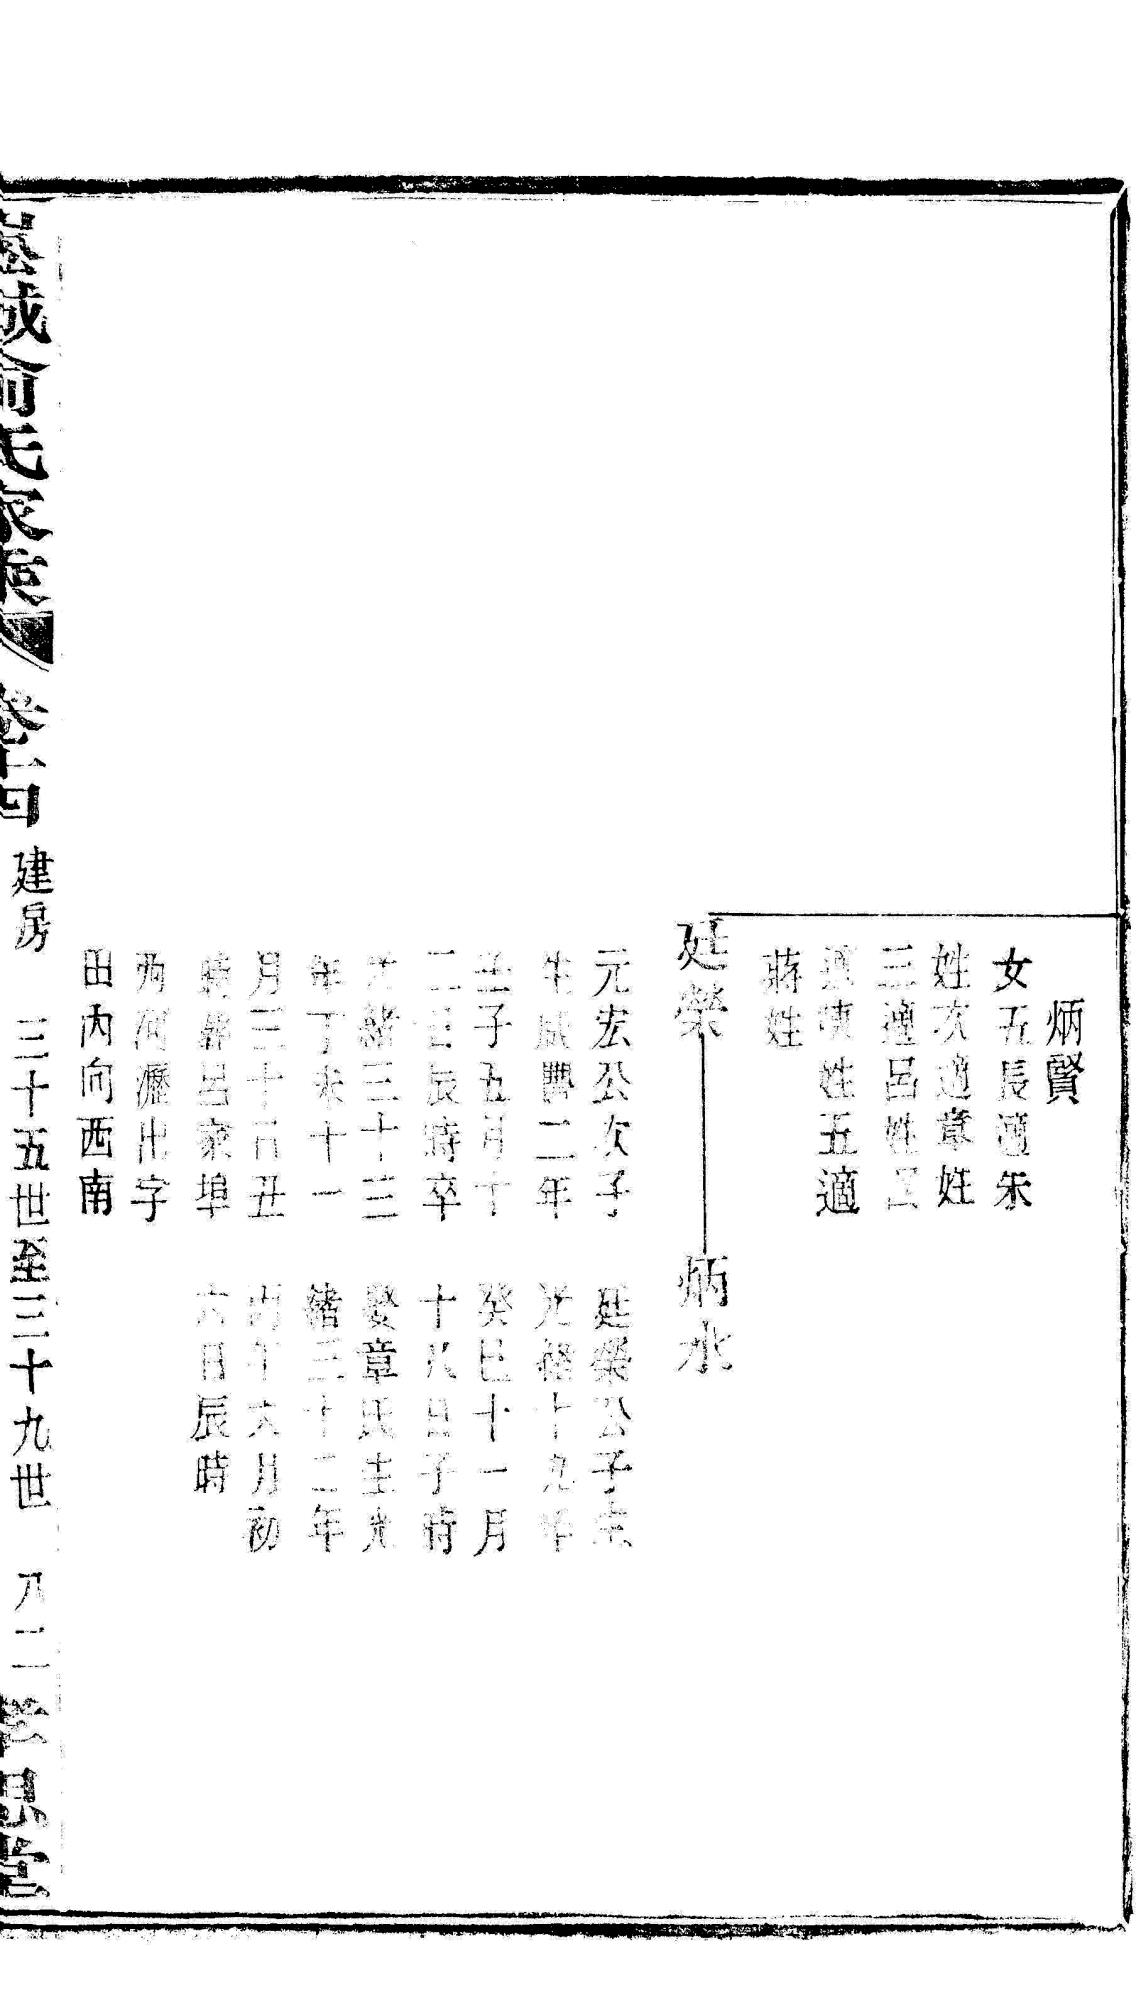 炳賢
女五長適朱
姓次適章姓
三適呂姓四
適 姓五適
蔣姓
廷榮
炳水
元宏公次子
生咸豐二年
壬子五月十
二日辰時卒
光緒三十三
年丁未十一
月三十日丑
時 呂家埠
 河瀝出字
田內向西南
廷榮公子生
光緒十九年
癸巳十一月
十八日子時
娶章氏生光
緒三十二年
丙午六月初
六日辰時
城俞氏家乘 卷十四 建房 三十五世至三十九世 八二 孝思堂